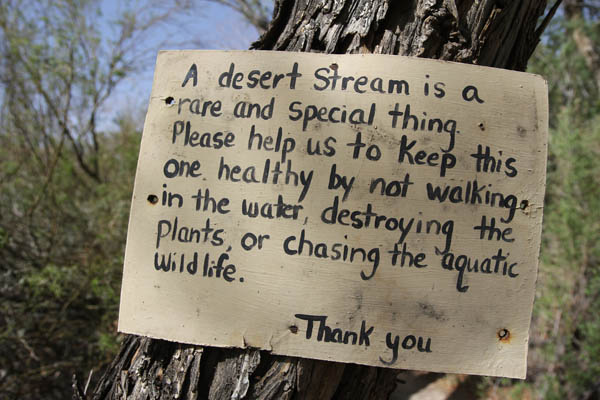 A desert Stream is a
rare and special thing.
Please help us to Keep this
one healthy by not walking
in the water, destroying the
plants, or chasing the aquatic
wildlife.
Thank you